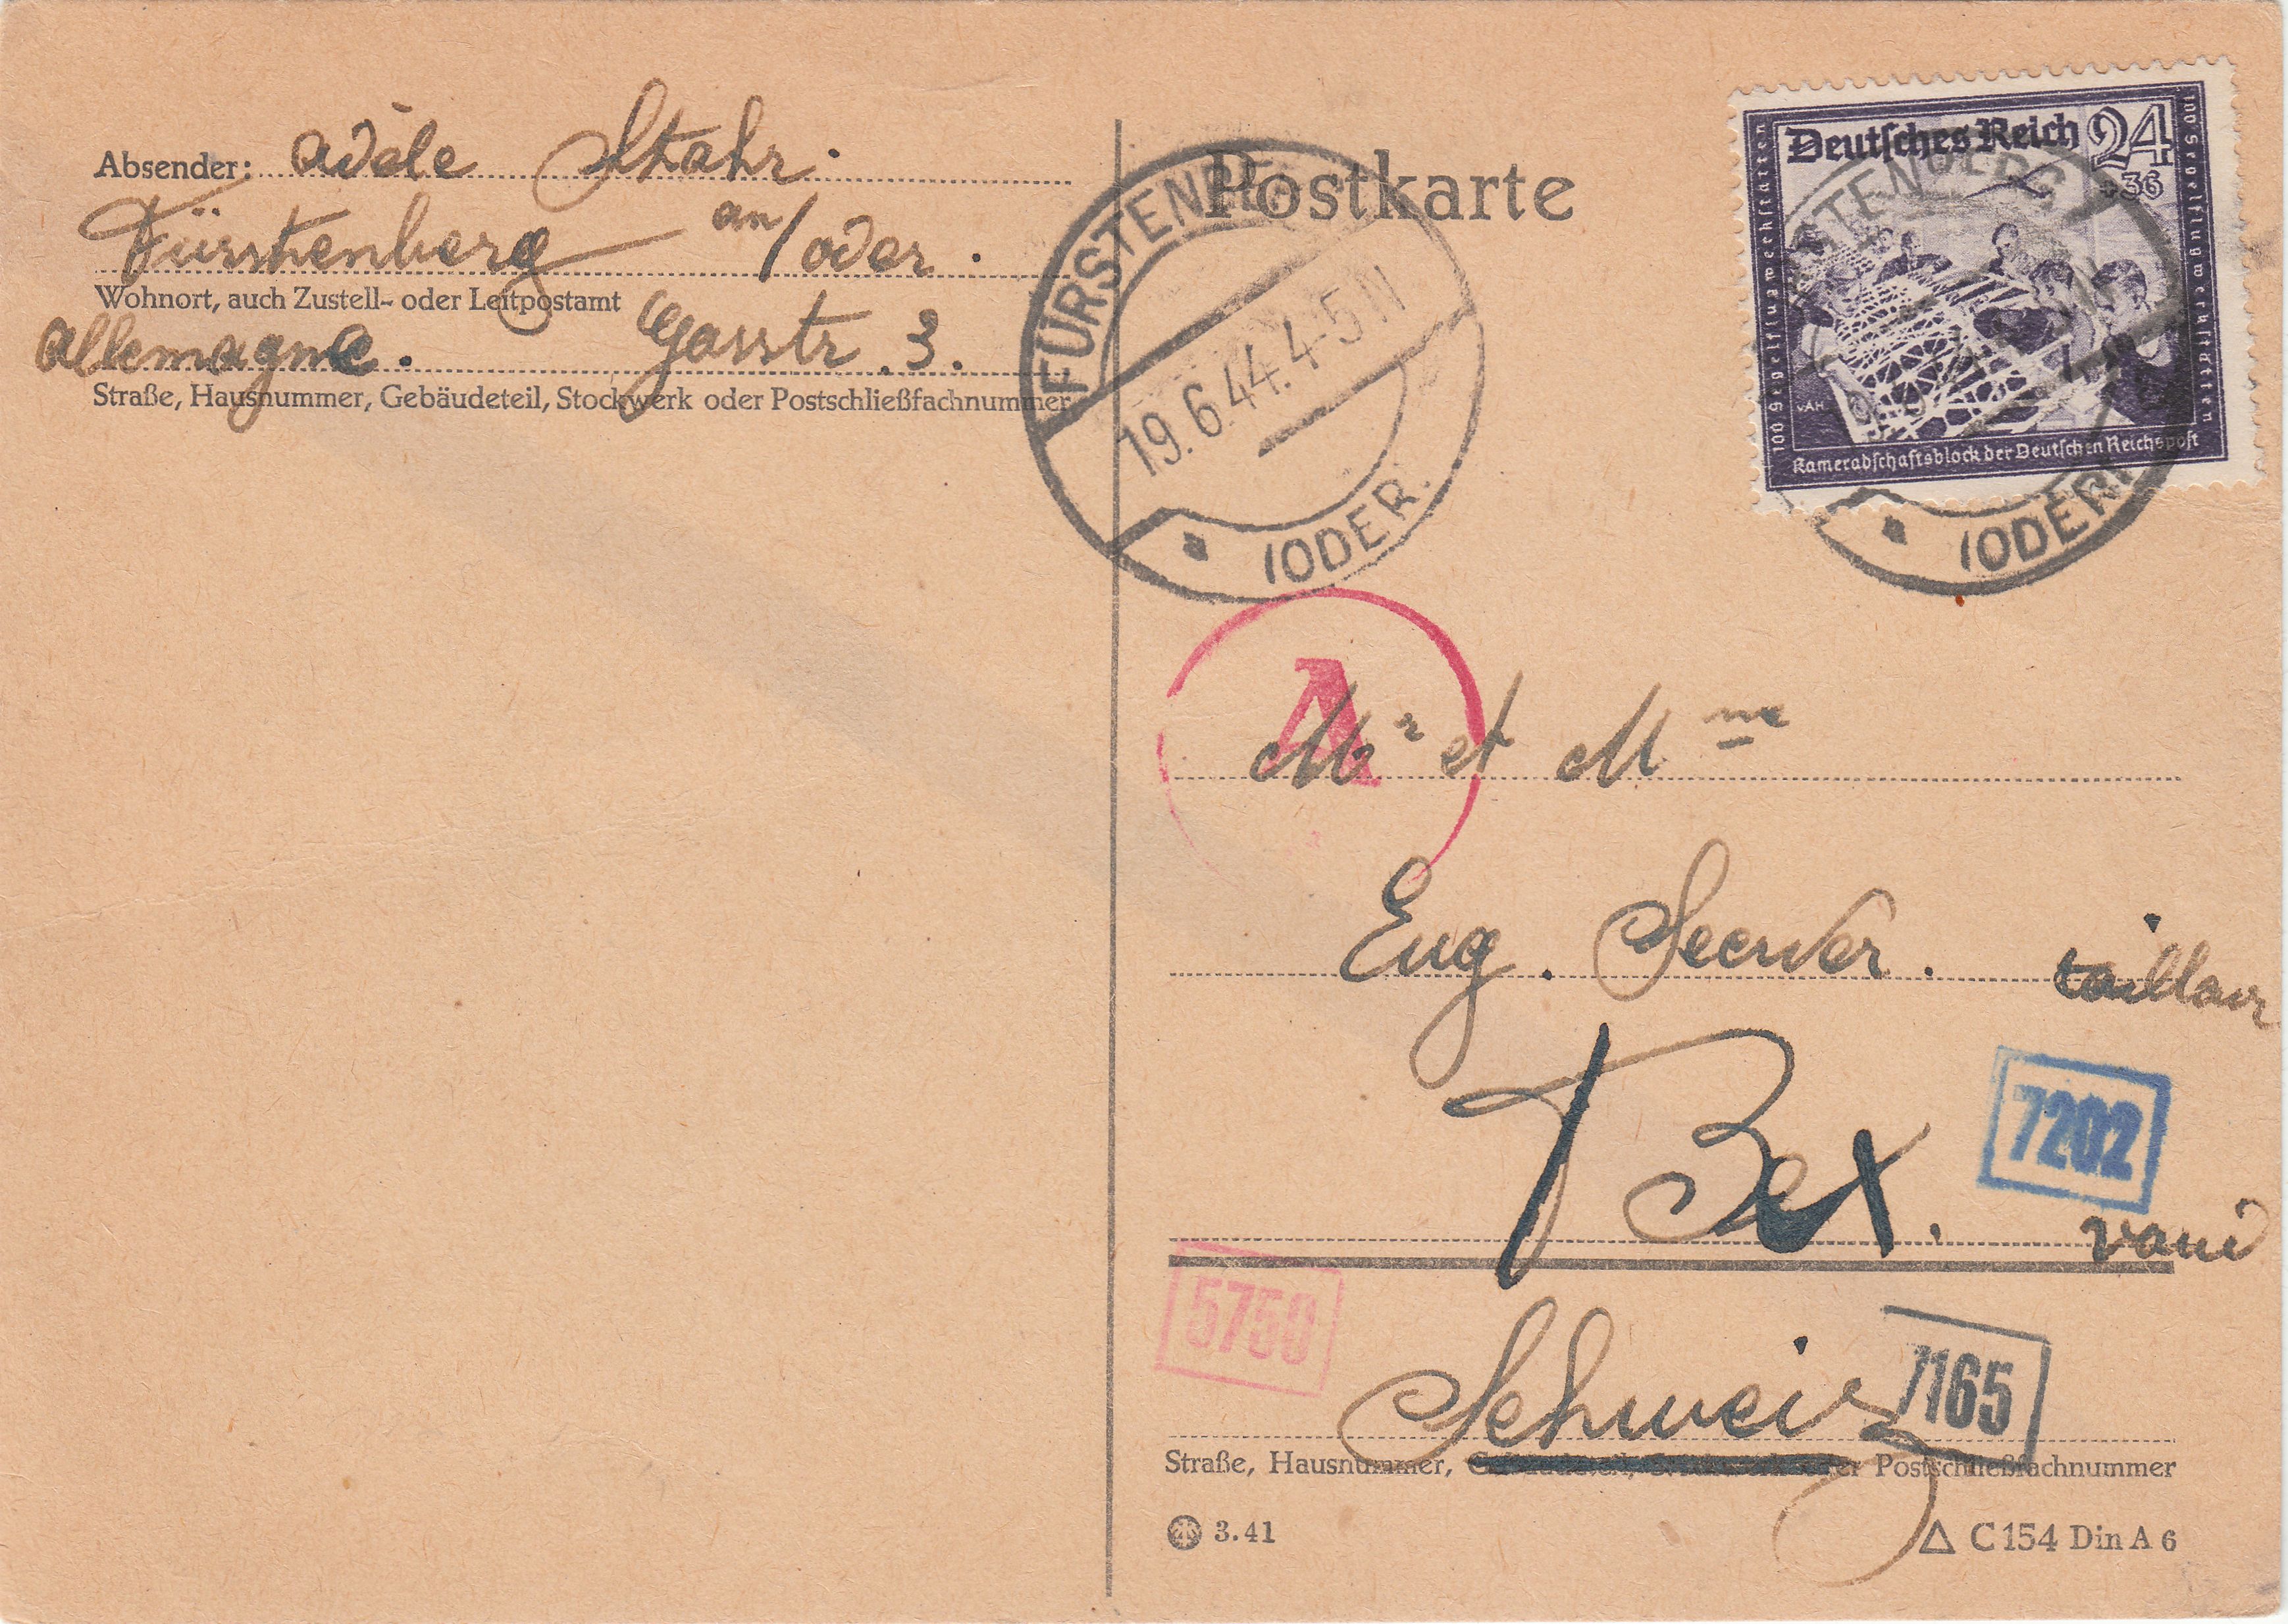 Absender: Adèle Stahr.
Fürstenberg an/oder.
Wohnort, auch Zustell- oder Leitpostamt
allemagne. str. 3.
Straße, Hausnummer, Gebäudeteil, Stockwerk oder Postschließfachnummer
Postkarte
FÜRSTENBERG
19.6.44.4-5N
(ODER)
Deutsches Reich 24
+36
100 Segelflugwerkstätten
100 Segelflugwerkstätten
vAH
Kameradschaftsblock der Deutschen Reichspost
FÜRSTENBERG
(ODER)
A
Mr et Mme
Eug. tailleur
Bex.
7202
vaud
5750
Schweiz
7165
Straße, Hausnummer, Gebäudeteil, Stockwerk oder Postschließfachnummer
3.41
C 154 Din A 6